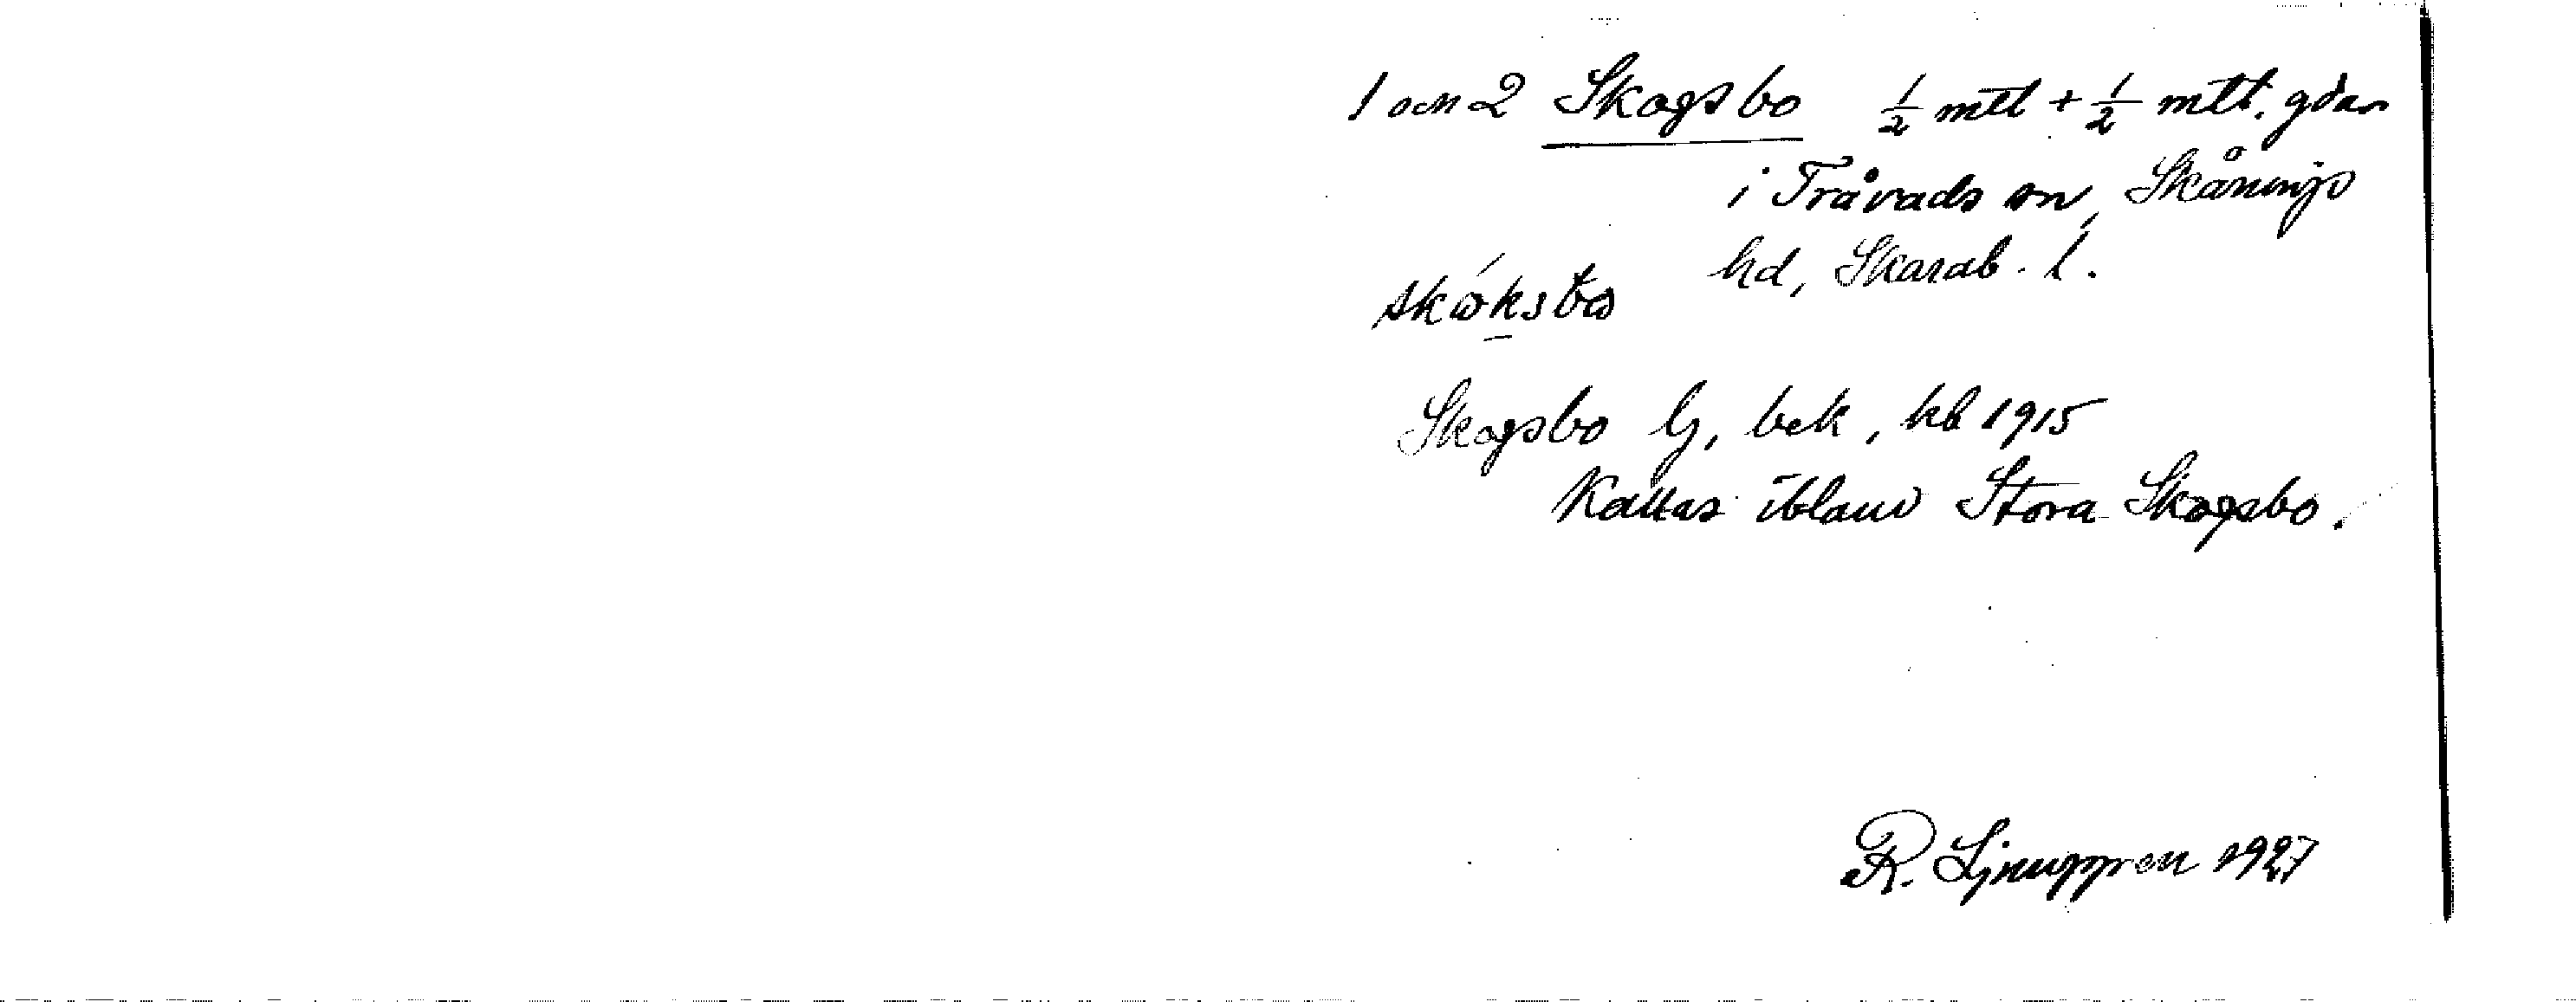 1 och 2 Skogsbo ½ mtl + ½ mtl. gdar
i Tråvads sn, Skånings
hd, Skarab. l.
skóksbo
Skogsbo Gj, bek, kb 1915
Kallas ibland Stora Skogsbo.
R. Ljunggren 1927